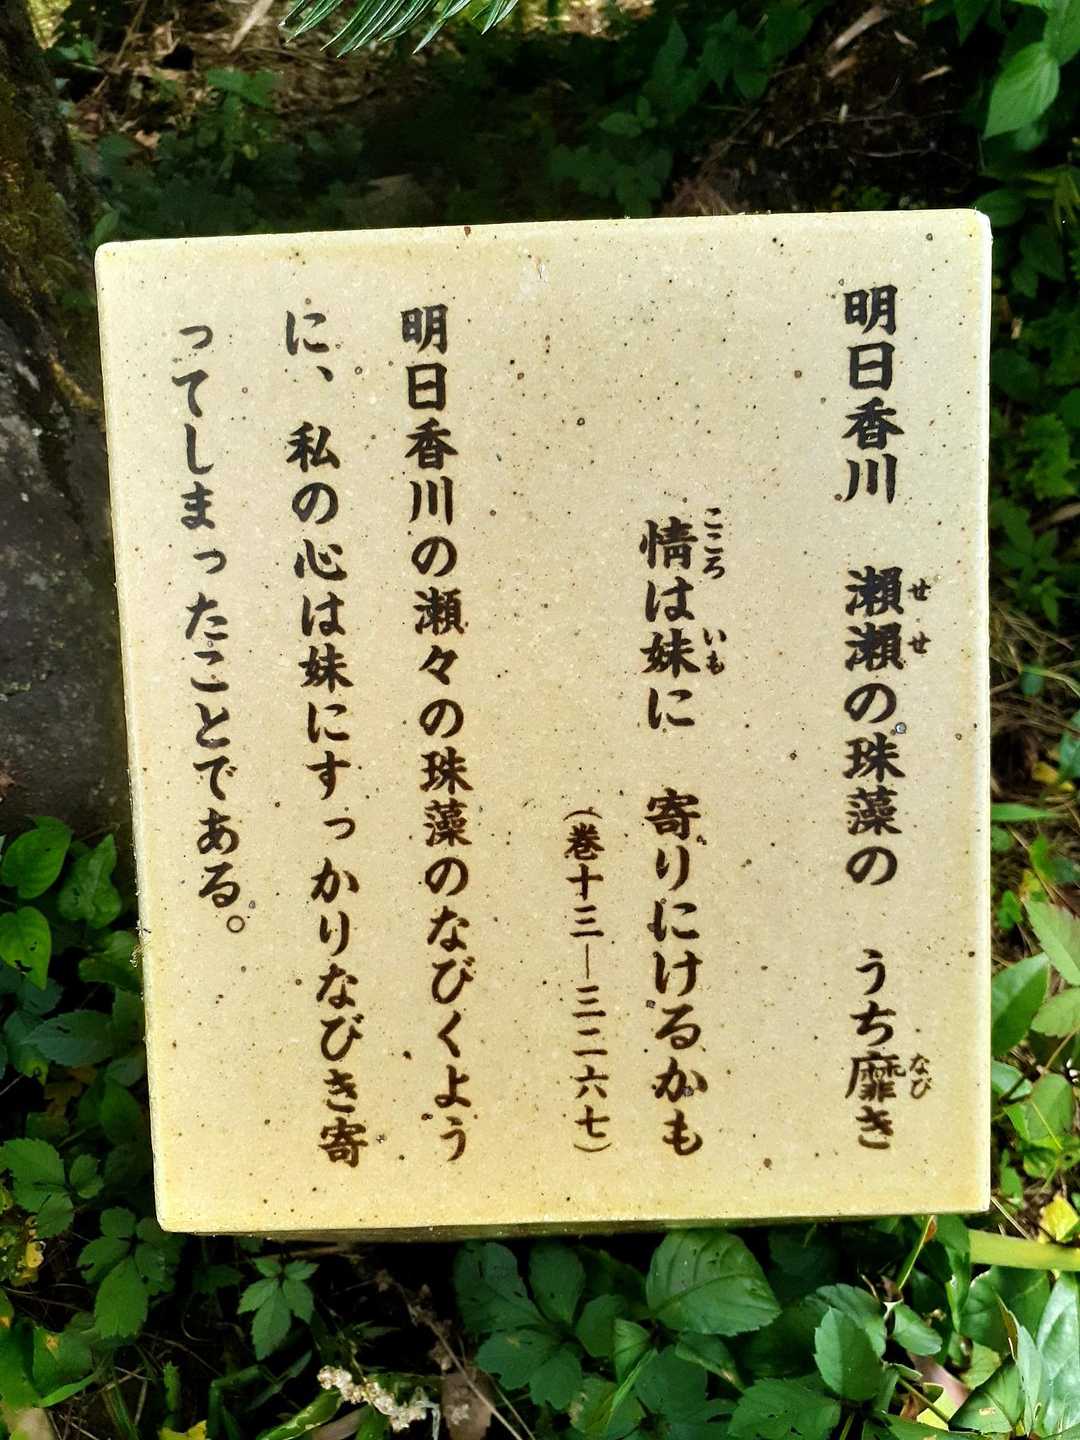 明日香川　瀬瀬の珠藻の　うち靡き
せ　せ
なび
情は妹に　寄りにけるかも
こころ
いも
（巻十三―三二六七）
明日香川の瀬々の珠藻のなびくよう
に、私の心は妹にすっかりなびき寄
ってしまったことである。